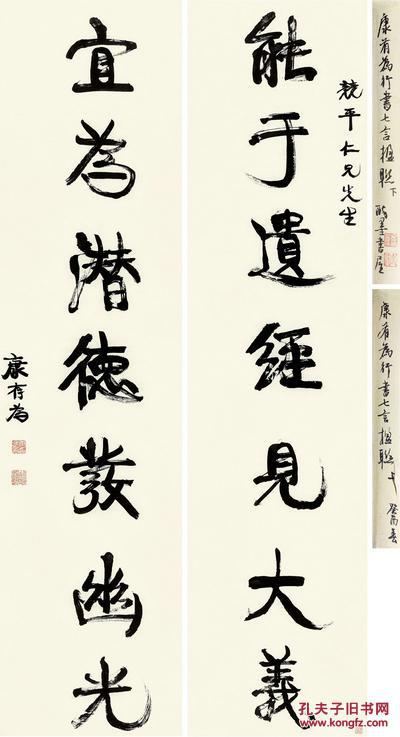 能于遺經見大義
競平仁兄先生
宜為潛德發幽光
康有為
康有為行書七言楹聯 下
康有為行書七言楹聯 上
孔夫子旧书网
www.kongfz.com